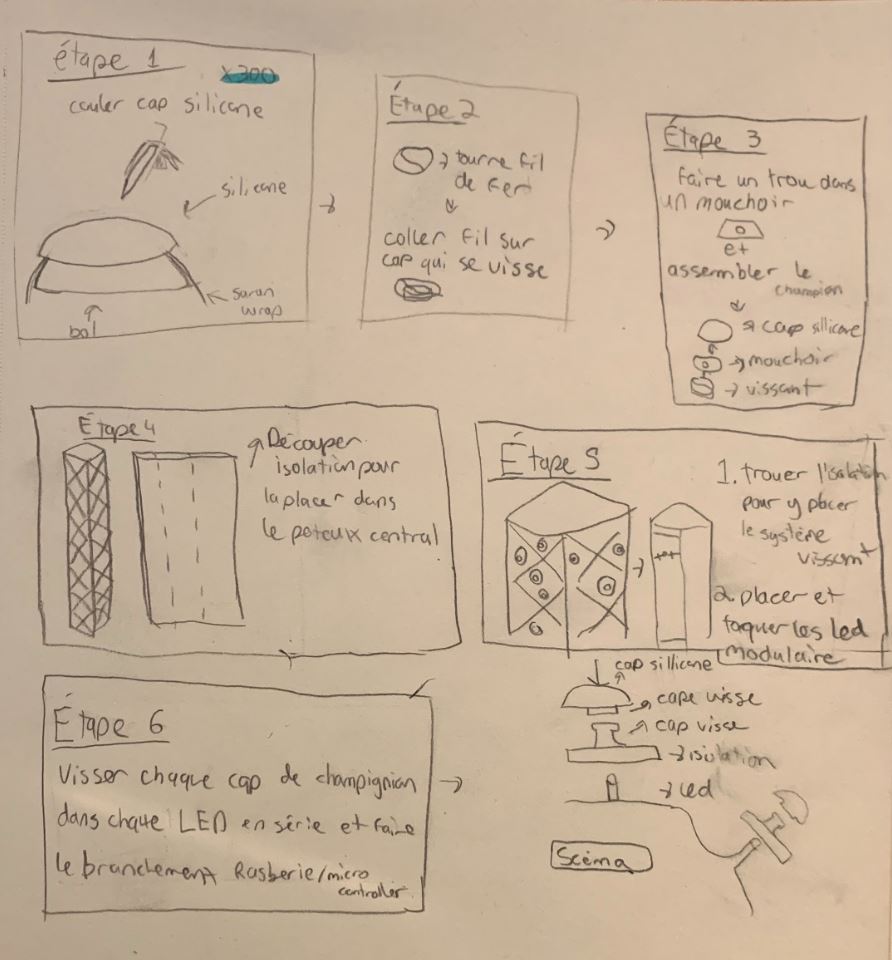 étape 1
x300
couler cap silicone
silicone
saran
wrap
bol
Étape 2
tourne fil
de fer
coller fil sur
cap qui se visse
Étape 3
faire un trou dans
un mouchoir
et
assembler le
champion
cap sillicone
mouchoir
vissant
Étape 4
Découper
isolation pour
la placer dans
le poteux central
Étape 5
1. trouer l'isolation
pour y placer
le système
vissant
2. placer et
taquer les led
modulaire
Étape 6
Visser chaque cap de champignian
dans chaque LED en série et faire
le branchement Rasberie/micro
controller
cap sillicone
cape visse
cap visse
isolation
led
Scéma